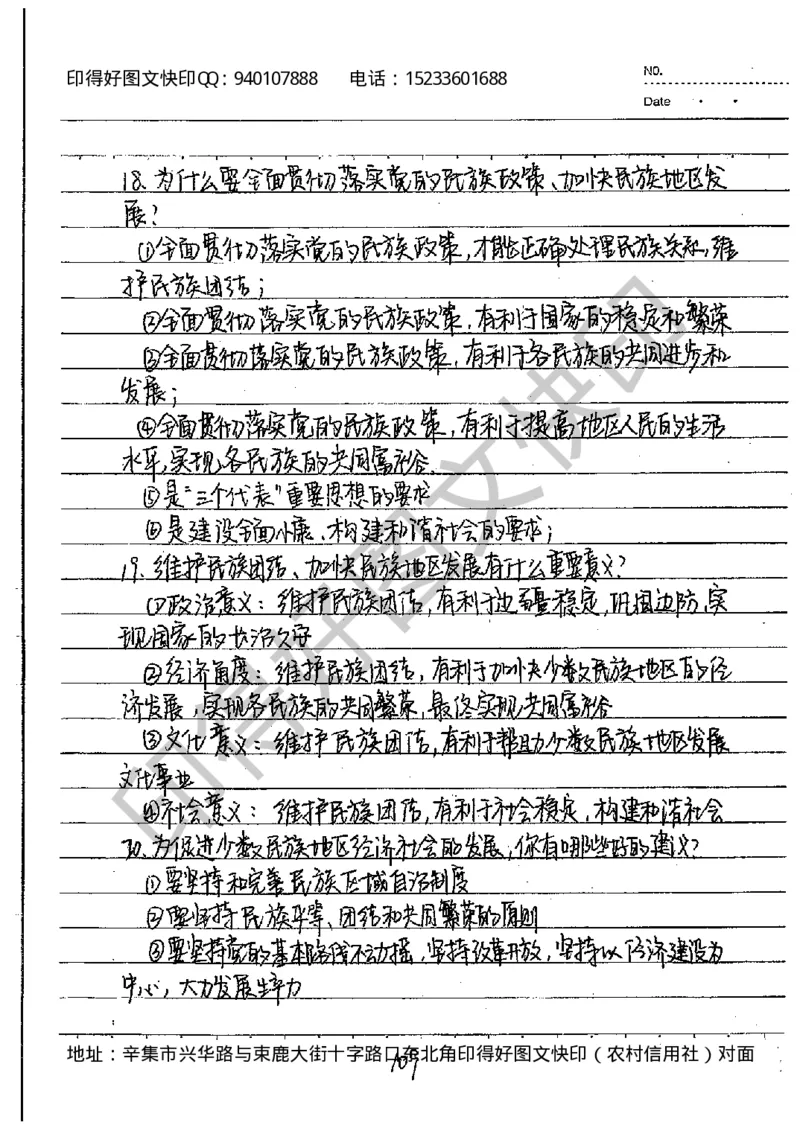 印得好图文快印QQ：940107888 电话：15233601688
NO.
Date
18、为什么要全面贯彻落实党的民族政策、加快民族地区发
展？
①全面贯彻落实党的民族政策，才能正确处理民族关系，维
护民族团结；
②全面贯彻落实党的民族政策，有利于国家的稳定和繁荣
③全面贯彻落实党的民族政策，有利于各民族的共同进步和
发展；
④全面贯彻落实党的民族政策，有利于提高地区人民的生活
水平，实现各民族的共同富裕.
⑤是“三个代表”重要思想的要求
⑥是建设全面小康、构建和谐社会的要求；
19、维护民族团结、加快民族地区发展有什么重要意义？
①政治意义：维护民族团结，有利于边疆稳定，巩固边防，实
现国家的长治久安
②经济角度：维护民族团结，有利于加快少数民族地区的经
济发展，实现各民族的共同繁荣，最终实现共同富裕
③文化意义：维护民族团结，有利于帮助少数民族地区发展
文化事业
④社会意义：维护民族团结，有利于社会稳定，构建和谐社会
20、为促进少数民族地区经济社会的发展，你有哪些好的建议？
①要坚持和完善民族区域自治制度
②要坚持民族平等、团结和共同繁荣的原则
③要坚持党的基本路线不动摇，坚持改革开放，坚持以经济建设为
中心，大力发展生产力
地址：辛集市兴华路与束鹿大街十字路口东北角印得好图文快印（农村信用社）对面
109
印得好图文快印